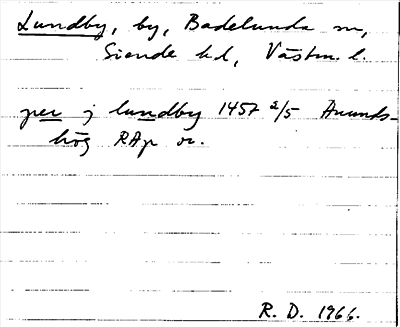 Lundby, by, Badelunda sn,
Siende hd, Västm. l.
per j lundby 1457 2/5 Anunds-
hög RAp or.
R. D. 1966.